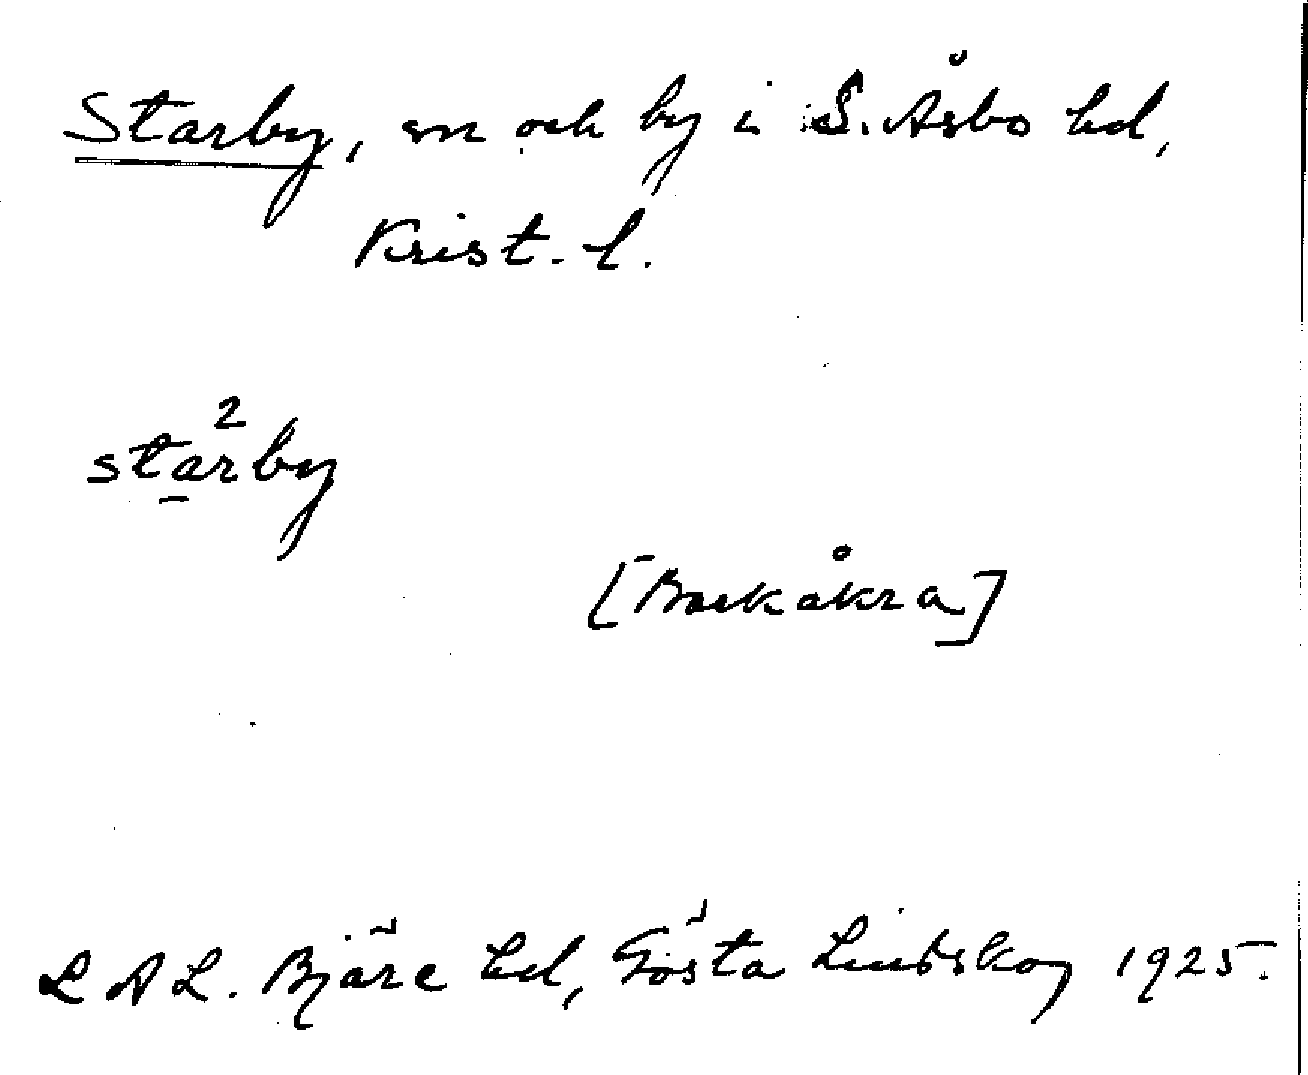 Starby, sn och by i S. Åsbo hd,
Krist. l.
2
starby
[Backåkra]
LAL. Bjäre hd, Gösta Lindskog 1925.